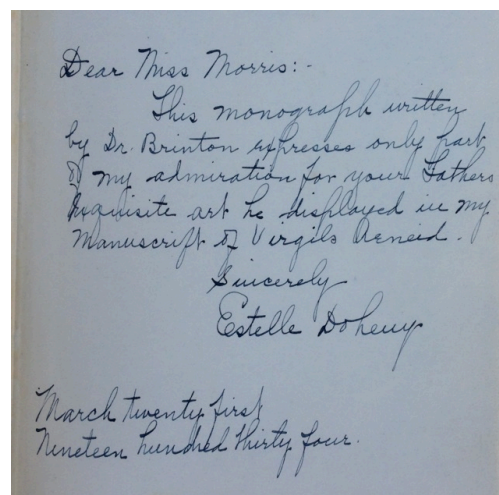 Dear Miss Morris:-
This monograph written
by Dr. Brinton expresses only part
of my admiration for your Fathers
exquisite art he displayed in my
Manuscript of Virgils Aeneid.
Sincerely
Estelle Doheny
March twenty first
Nineteen hundred thirty four.